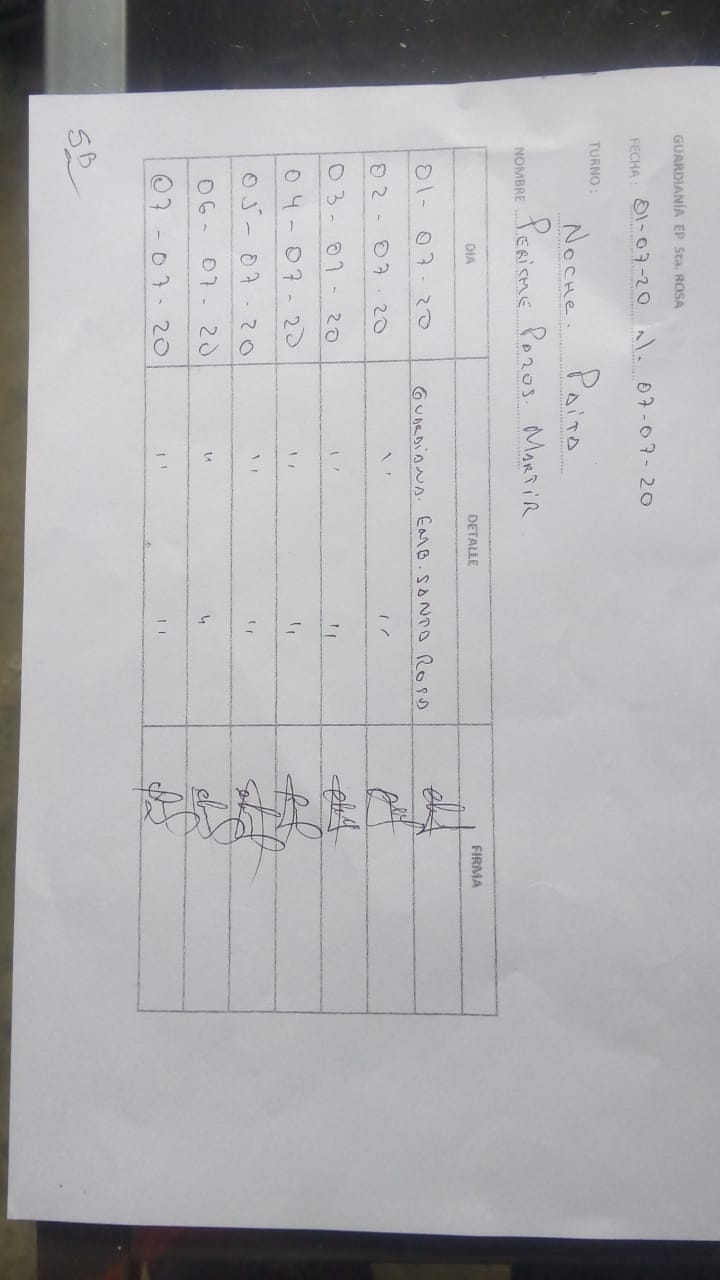 GUARDIANÍA EP Sta. ROSA
FECHA: 01-07-20 al. 07-07-20
TURNO: Noche. Paita
NOMBRE Periche Pazos. Martir
DIA DETALLE FIRMA
01-07-20 Guardiana. Emb. Santa Rosa
02-07-20 '' ''
03-07-20 '' ''
04-07-20 '' ''
05-07-20 '' ''
06-07-20 '' ''
07-07-20 '' ''